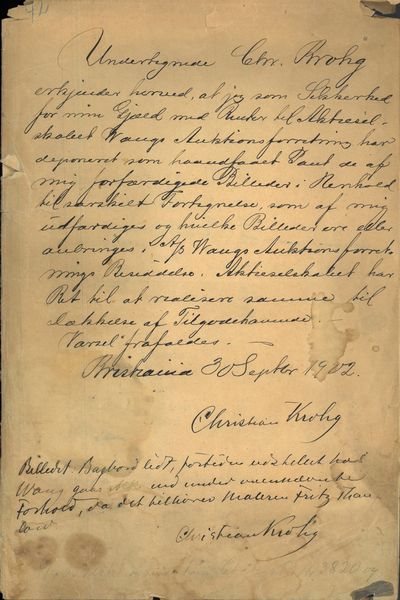 Undertegnede Chr. Krohg
erkjender herved, at jeg som Sikkerhed
for min Gjæld med Renter til Aktiesel-
skabet Wangs Auktionsforretning har
deponeret som haandfaaet Pant de af
mig forfærdigede Billeder i Henhold
til særskilt Fortegnelse, som af mig
udfærdiges og hvilke Billeder ere eller
anbringes i A/S Wangs Auktionsforret-
nings Besiddelse. Aktieselskabet har
Ret til at realisere samme til
Dækkelse af Tilgodehavende.
Varsel frafaldes.
Kristiania 30 Septbr 1902.
Christian Krohg
Billedet Bagbord lidt, fortiden udstillet hos
Wang gaar ind under ovennævnte
Forhold, da det tilhører Maleren Fritz Thau
low
Christian Krohg